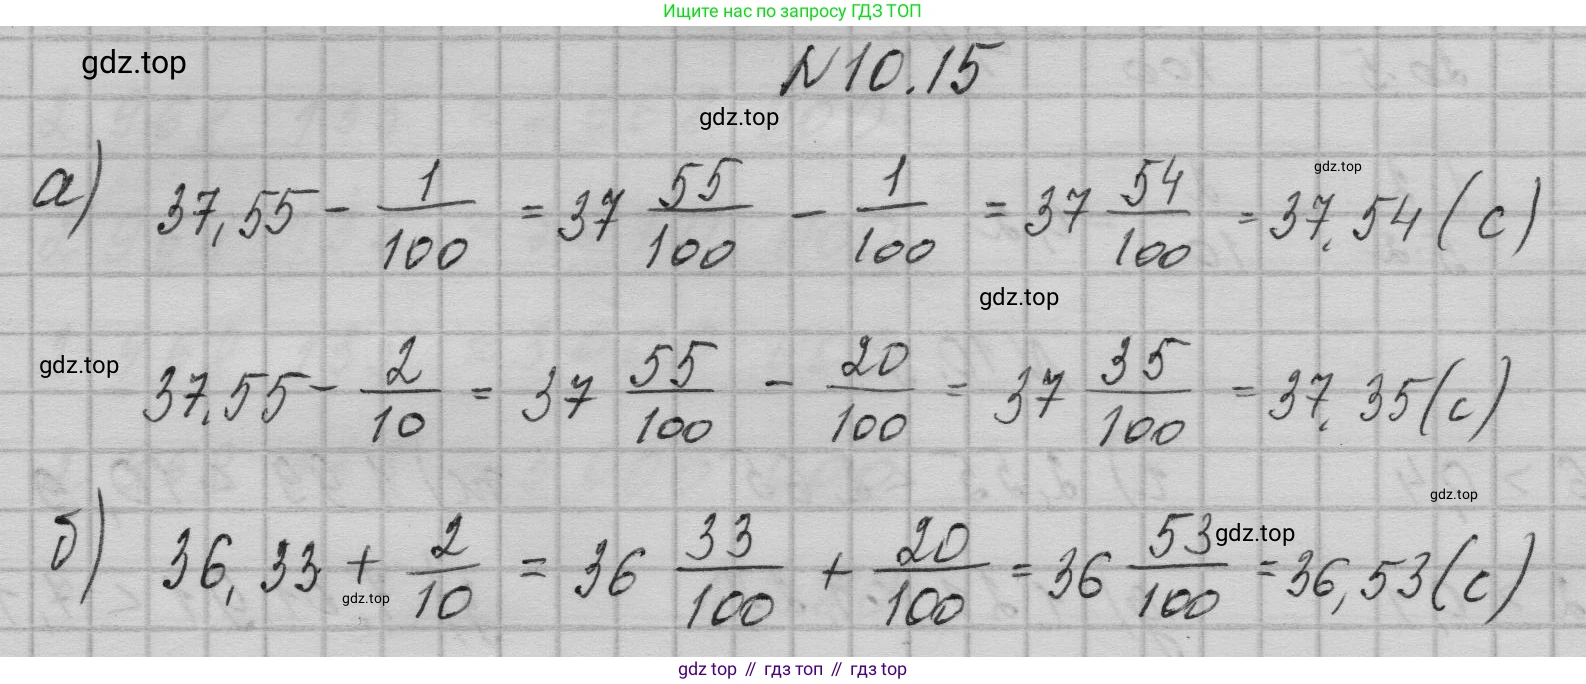 Ищите нас по запросу ГДЗ ТОП
gdz.top
№10.15
gdz.top
а) 37,55 - 1/100 = 37 55/100 - 1/100 = 37 54/100 = 37,54 (с)
gdz.top
gdz.top
gdz.top
37,55 - 2/10 = 37 55/100 - 20/100 = 37 35/100 = 37,35 (с)
gdz.top
б) 36,33 + 2/10 = 36 33/100 + 20/100 = 36 53/100 = 36,53 (с)
gdz.top
gdz.top
gdz top // гдз топ // гдз top